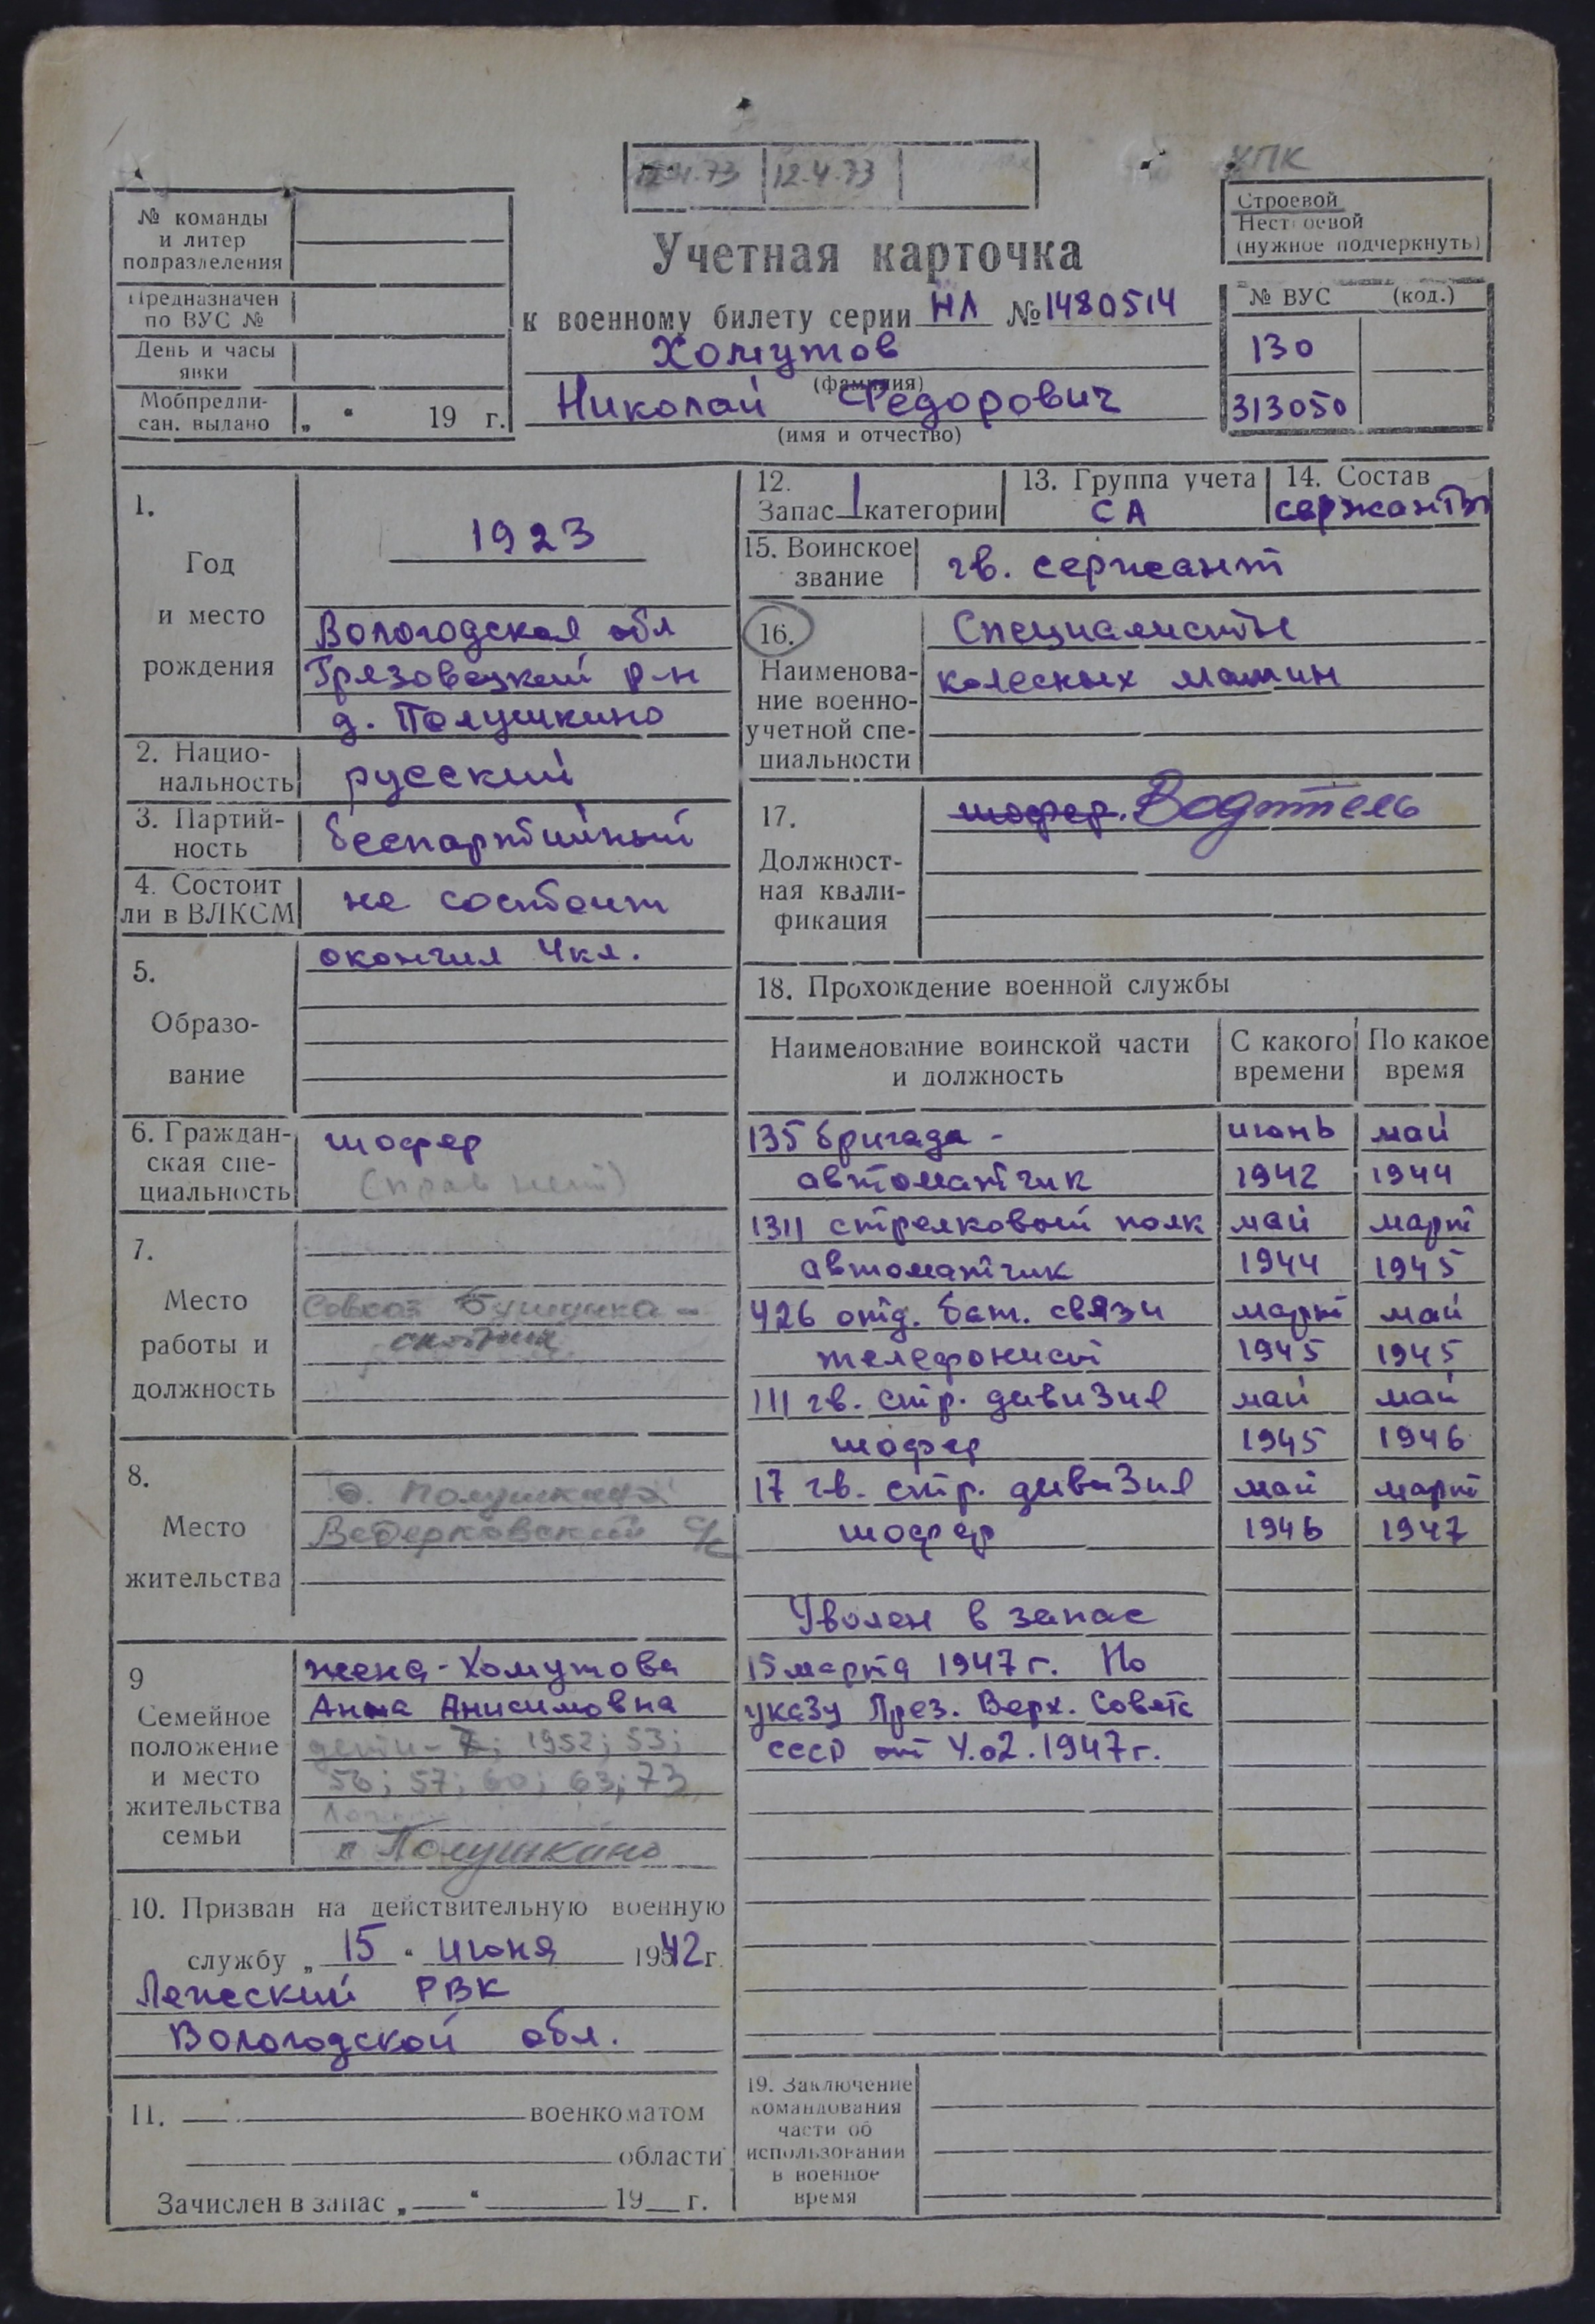 УПК
12.4.73 12.4.73
№ команды
и литер
подразделения
Предназначен
по ВУС №
День и часы
явки
Мобпредпи-
сан. выдано „ “ 19 г.
Учетная карточка
к военному билету серии НЛ № 1480514
Хомутов
(фамилия)
Николай Федорович
(имя и отчество)
Строевой
Нестроевой
(нужное подчеркнуть)
№ ВУС (код.)
130
313050
1.
Год
и место
рождения
1923
Вологодская обл
Грязовецкий р-н
д. Полушкино
2. Нацио-
нальность
русский
3. Партий-
ность
беспартийный
4. Состоит
ли в ВЛКСМ
не состоит
5.
Образо-
вание
окончил 4кл.
6. Граждан-
ская спе-
циальность
шофер
(прав нет)
7.
Место
работы и
должность
Совхоз
скотник
8.
Место
жительства
д. Полушкино
Ведерковский с/с
9
Семейное
положение
и место
жительства
семьи
жена - Хомутова
Анна Анисимовна
дети - 1952; 53;
56; 57; 60; 63; 73
Полушкино
10. Призван на действительную военную
службу „ 15 “ июня 1942 г.
Лежский РВК
Вологодской обл.
11. военкоматом
области
Зачислен в запас „ “ 19 г.
12.
Запас 1 категории
13. Группа учета
СА
14. Состав
сержанты
15. Воинское
звание
гв. сержант
16.
Наименова-
ние военно-
учетной спе-
циальности
Специалисты
колесных машин
17.
Должност-
ная квали-
фикация
шофер. Водитель
18. Прохождение военной службы
Наименование воинской части
и должность
С какого
времени
По какое
время
135 бригада - июнь май
автоматчик 1942 1944
1311 стрелковый полк май март
автоматчик 1944 1945
426 отд. бат. связи март май
телефонист 1945 1945
111 гв. стр. дивизия май май
шофер 1945 1946
17 гв. стр. дивизия май март
шофер 1946 1947
Уволен в запас
15 марта 1947 г. По
указу През. Верх. Совета
СССР от 4.02.1947 г.
19. Заключение
командования
части об
использовании
в военное
время